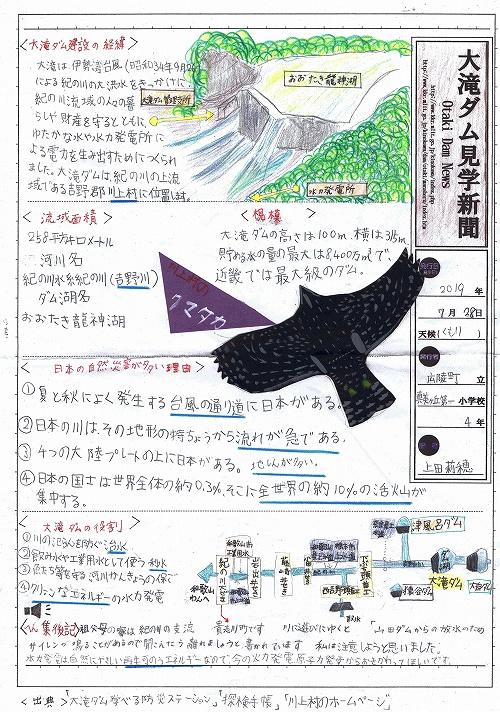 大滝ダム見学新聞
Otaki Dam News
発行日
2019 年
7月 28日
天候 (くもり)
発行者
広陵町 立
小学校
4 年
<大滝ダム建設の経緯>
大滝は、伊勢湾台風 (昭和34年9月26
による紀の川の大洪水をきっかけに、
紀の川流域の人々の暮
らしや財産を守るとともに
ゆたかな水や水力発電所に
よる電力を生み出すためにつくられ
ました。大滝ダムは、紀の川の上流
域である吉野郡川上村に位置します。
おおたき龍神湖
大滝ダム管理所
水力発電所
<流域面積>
258平方キロメートル
河川名
紀の川水系紀の川(吉野川)
ダム湖名
おおたき龍神湖
<規模>
大滝ダムの高さは100m、横は315m
貯める水の量の最大は8400万㎥で、
近畿では最大級のダム。
川上村の
クマタカ
<日本の自然災害が多い理由>
①夏と秋によく発生する台風の通り道に日本がある。
②日本の川は、その地形の特ちょうから流れが急である。
③4つの大陸プレートの上に日本がある。 地しんが多い。
④日本の国土は世界全体の約0.3%、そこに全世界の約10%の活火山が
集中する。
<大滝ダムの役割>
①川のはんらんを防ぐ治水
②飲み水や工業用水として使う利水
④クリーンなエネルギーの水力発電
津風呂ダム
大滝ダム
大迫ダム
猿谷ダム
下渕頭首工
西吉野頭首工
紀の川大堰
和歌山
わんへ
<へん集後記>祖父母の家は紀の川の支流 貴志川町です 川に遊びにゆくと 「山田ダムからの放水のため
サイレンが鳴ることがあるので聞こえたら離れましょうと書かれています 私は注意しようと思いました。
水力発電は自然にやさしい再生可のうエネルギーなので、今の火力発電原子力発電からおきかわってほしいです。
<出典>「大滝ダム学べる防災ステーション」「探検手帳」「川上村のホームページ」